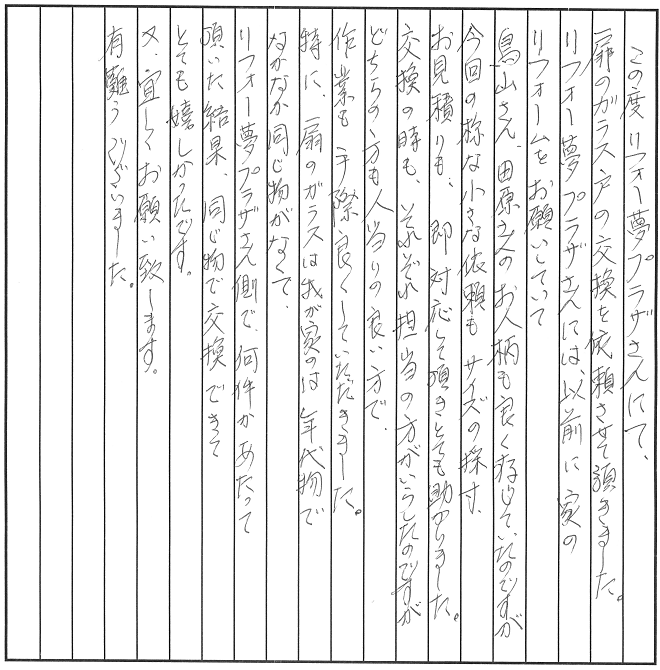 この度リフォー夢プラザさんにて、
扉のガラス戸の交換を依頼させて頂きました。
リフォー夢プラザさんには、以前に家の
リフォームをお願いしていて
鳥山さん、田原さんのお人柄も良く存じていたのですが
今回の様な小さな依頼もサイズの採寸、
お見積りも、即対応して頂きとても助かりました。
交換の時も、それぞれ担当の方がいらしたのですが
どちらの方も人当りの良い方で、
作業も手際良くしていただきました。
特に、扉のガラスは我が家のは年代物で
なかなか同じ物がなくて、
リフォー夢プラザさん側で、何件かあたって
頂いた結果、同じ物で交換できて
とても嬉しかったです。
又、宜しくお願い致します。
有難うございました。